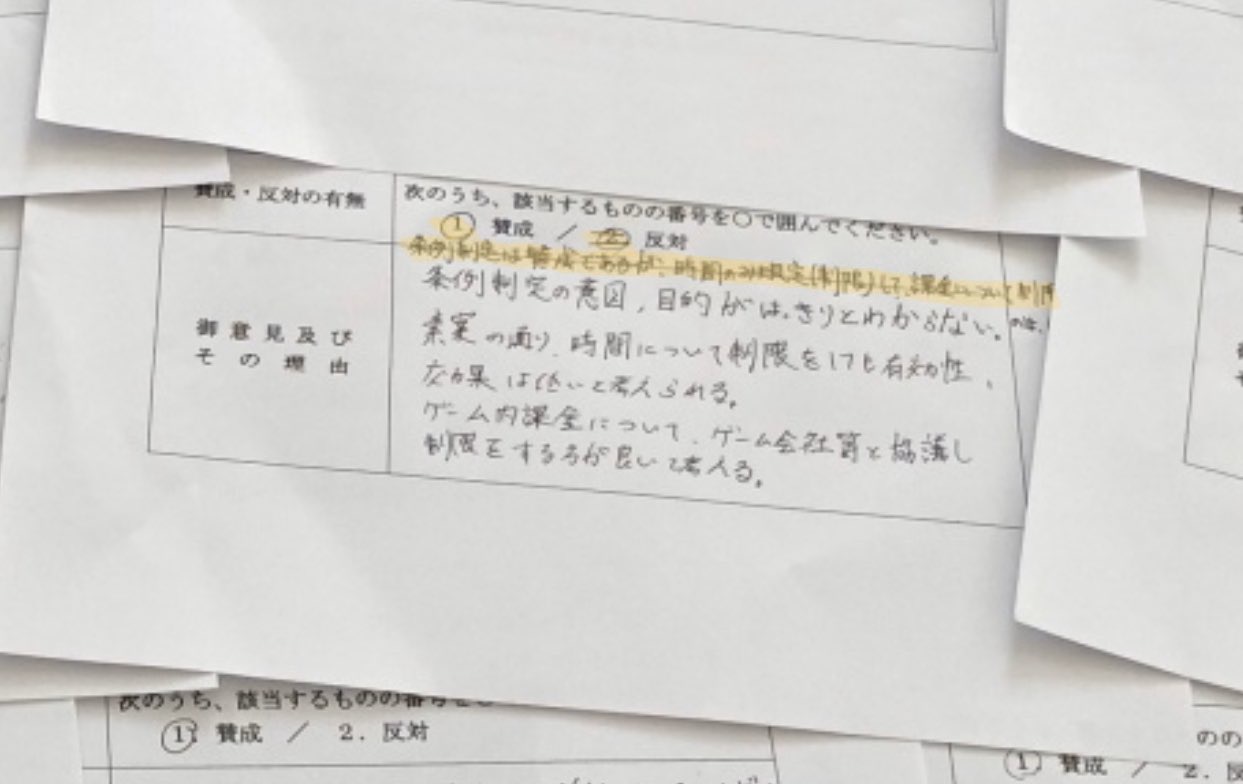 賛成・反対の有無
次のうち、該当するものの番号を○で囲んでください。
① 賛成 / ② 反対
条例制定は賛成であるが、時間のみ規定(制限)して、課金について制限
のは、
御意見及び
その理由
条例制定の意図、目的がはっきりとわからない。
素案の通り、時間について制限をしても有効性、
効果は低いと考えられる。
ゲーム内課金について、ゲーム会社等と協議し
制限をする方が良いと考える。
次のうち、該当するものの番号を
① 賛成 / 2. 反対
のの
① 賛成 / 2. 反